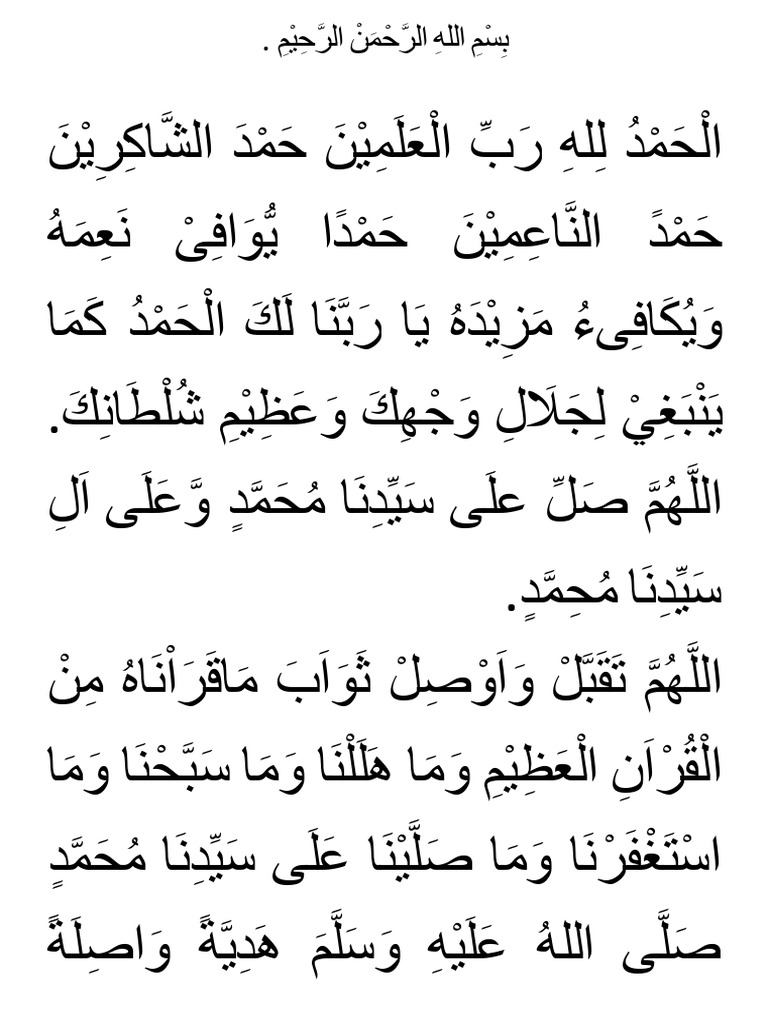 بِسْمِ اللهِ الرَّحْمَنْ الرَّحِيْمِ .
الْحَمْدُ لِلهِ رَبِّ الْعَلَمِيْنَ حَمْدَ الشَّاكِرِيْنَ
حَمْدً النَّاعِمِيْنَ حَمْدًا يُّوَافِىْ نَعِمَهُ
وَيُكَافِىءُ مَزِيْدَهُ يَا رَبَّنَا لَكَ الْحَمْدُ كَمَا
يَنْبَغِيْ لِجَلَالِ وَجْهِكَ وَعَظِيْمِ شُلْطَانِكَ.
اللَّهُمَّ صَلِّ علَى سَيِّدِنَا مُحَمَّدٍ وَّعَلَى اَلِ
سَيِّدِنَا مُحِمَّدٍ.
اللَّهُمَّ تَقَبَّلْ وَاَوْصِلْ ثَوَابَ مَاقَرَاْنَاهُ مِنْ
الْقُرْاَنِ الْعَظِيْمِ وَمَا هَلَلْنَا وَمَا سَبَّحْنَا وَمَا
اسْتَغْفَرْنَا وَمَا صَلَّيْنَا عَلَى سَيِّدِنَا مُحَمَّدٍ
صَلَّى اللهُ عَلَيْهِ وَسَلَّمَ هَدِيَّةً وَاصِلَةً